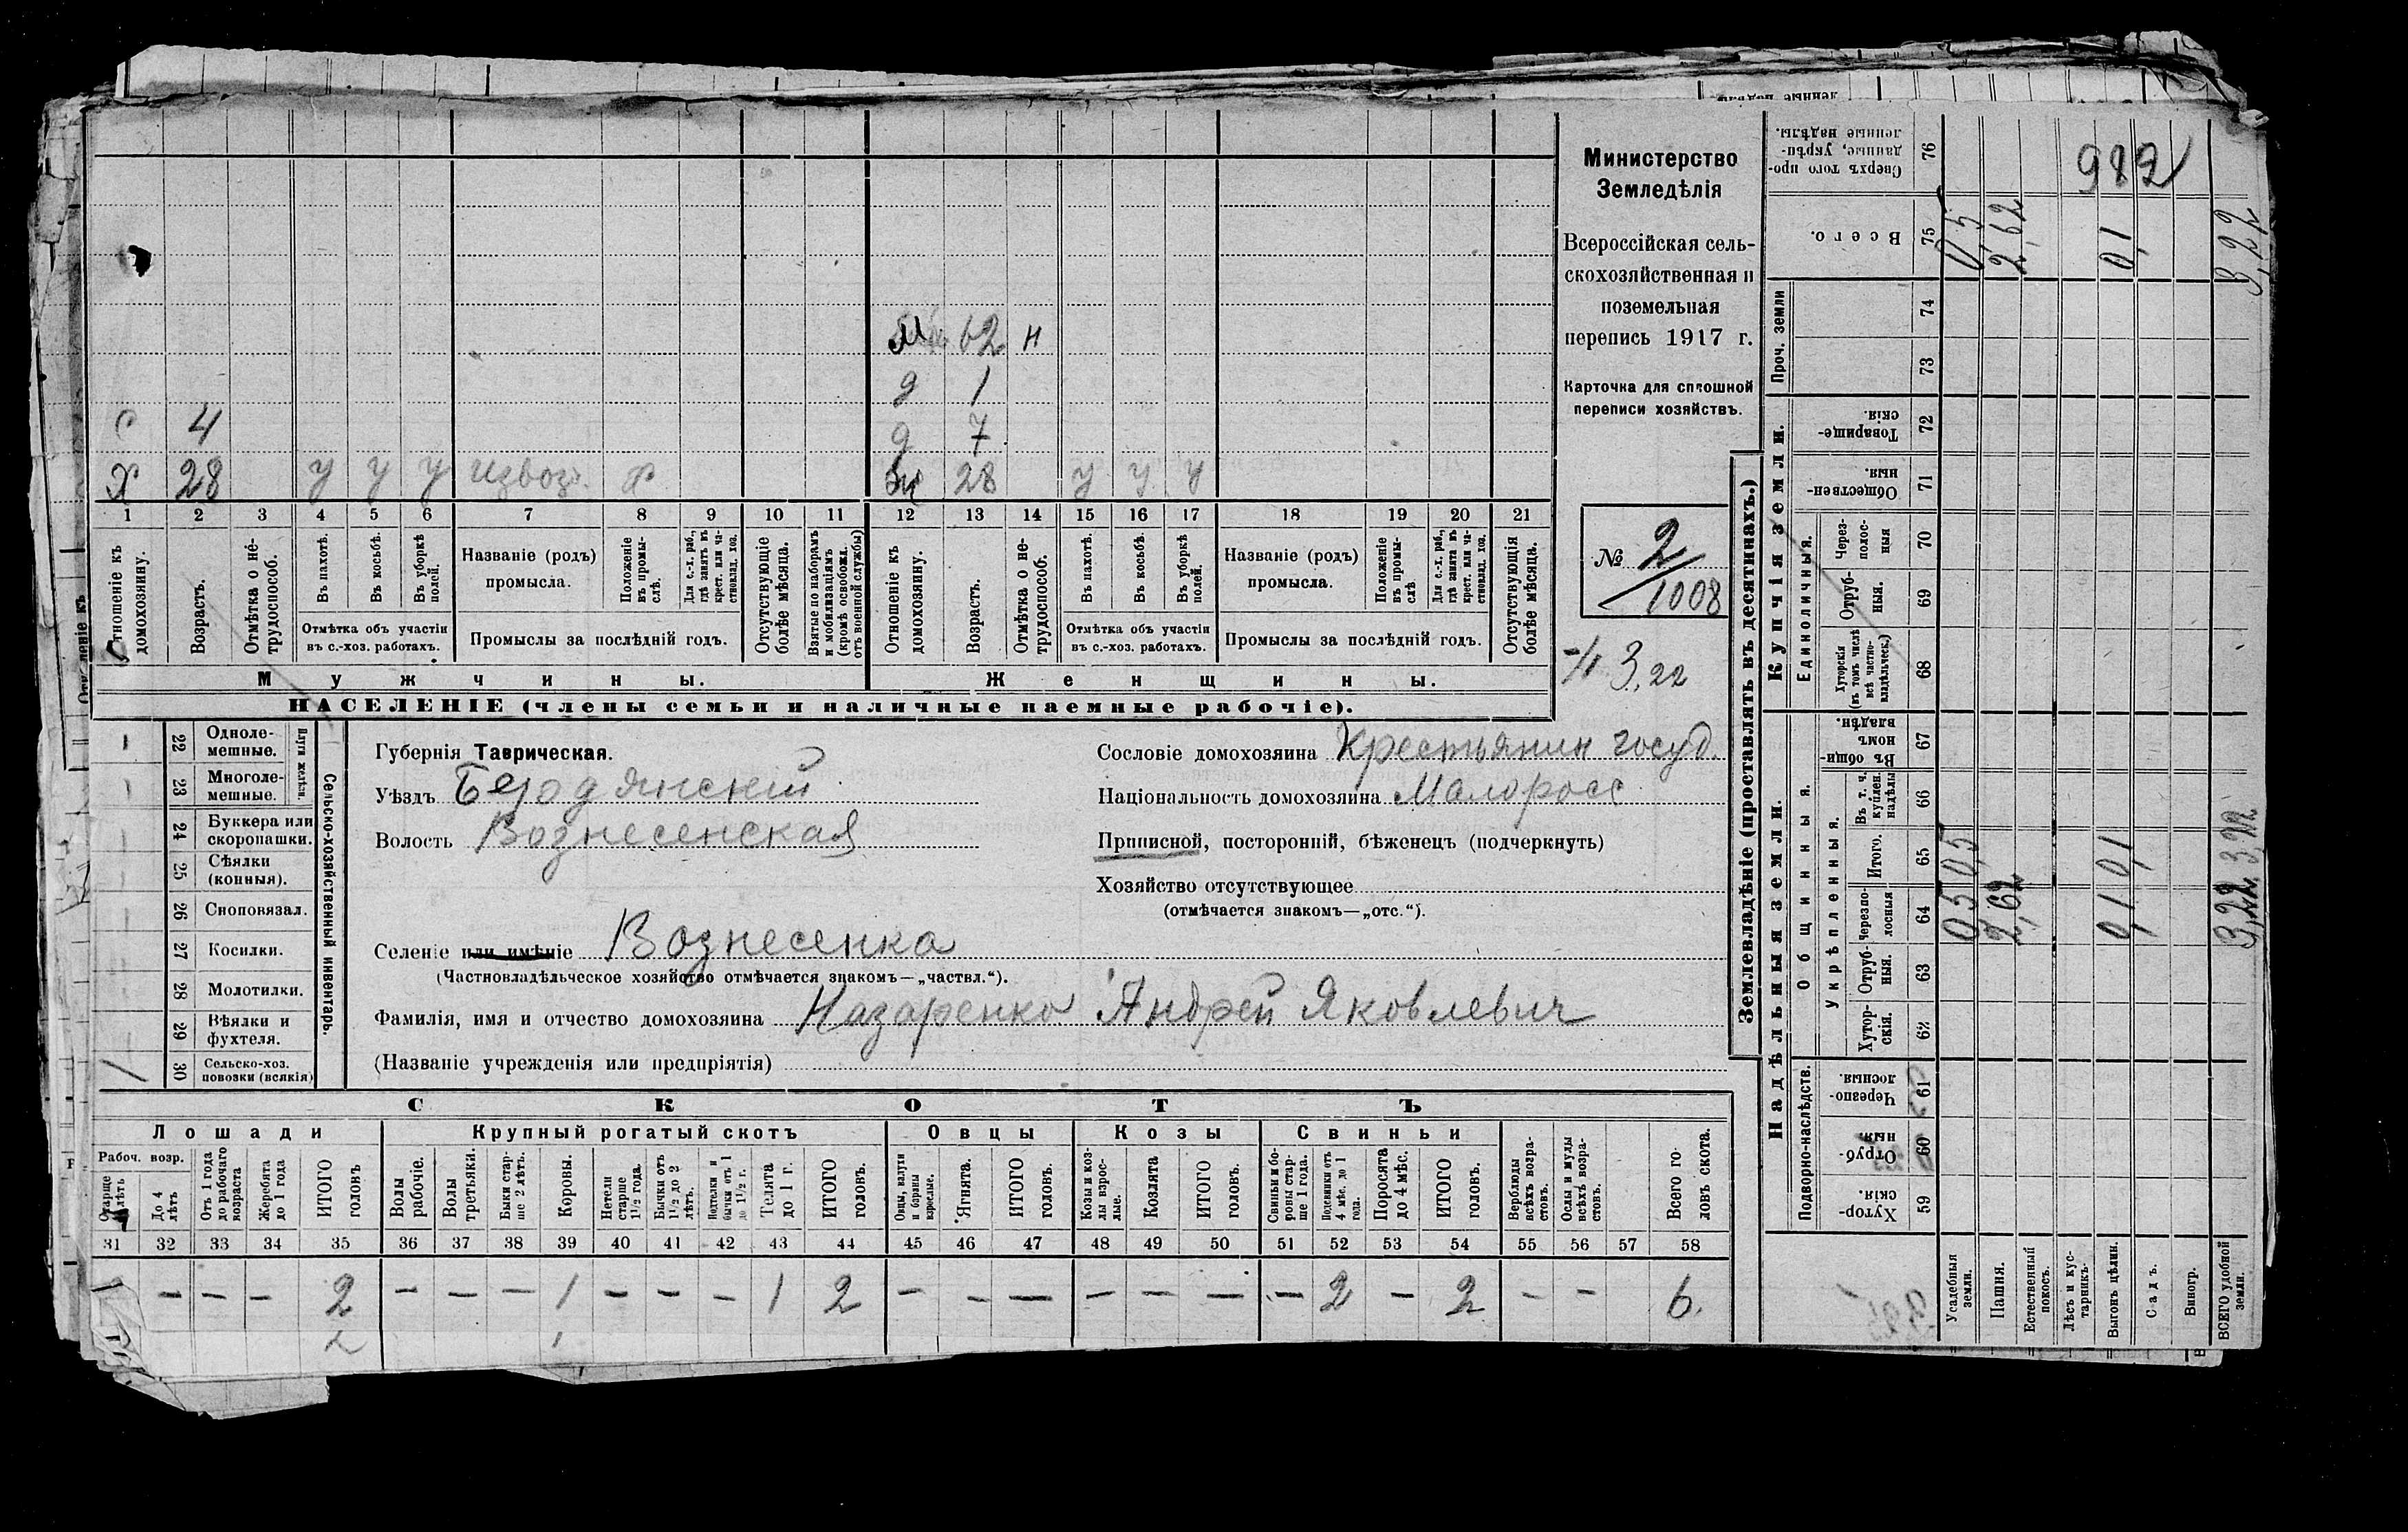 Министерство
Земледѣлія
Всероссійская сель-
скохозяйственная и
поземельная
перепись 1917 г.
Карточка для сплошной
переписи хозяйствъ.
№ 2/1008
3,22
м 62 н
д 1
с 4 д 7
х 28 у у у извоз. х ж 28 у у у
1 2 3 4 5 6 7 8 9 10 11 12 13 14 15 16 17 18 19 20 21
Отношеніе къ домохозяину.
Возрастъ.
Отмѣтка о не-трудоспособ.
Въ пахотѣ.
Въ косьбѣ.
Въ уборкѣ полей.
Отмѣтка объ участіи
въ с.-хоз. работахъ.
Названіе (родъ)
промысла.
Положеніе въ промы-слѣ.
Для с.-х. раб., гдѣ занятъ въ крест. или ча-стновлад. хоз.
Промыслы за послѣдній годъ.
Отсутствующіе болѣе мѣсяца.
Взятые по наборамъ и мобилизаціямъ (кромѣ освобожд. отъ военной службы)
Отношеніе къ домохозяину.
Возрастъ.
Отмѣтка о не-трудоспособ.
Въ пахотѣ.
Въ косьбѣ.
Въ уборкѣ полей.
Отмѣтка объ участіи
въ с.-хоз. работахъ.
Названіе (родъ)
промысла.
Положеніе въ промы-слѣ
Для с.-х. раб., гдѣ занята въ крест. или ча-стновлад. хоз.
Промыслы за послѣдній годъ.
Отсутствующія болѣе мѣсяца.
Мужчины. Женщины.
НАСЕЛЕНІЕ (члены семьи и наличные наемные рабочіе).
22 Одноле-мешные.
23 Многоле-мешные.
Плуги желѣзн.
24 Буккера или скоропашки.
25 Сѣялки (конныя).
26 Сноповязал.
27 Косилки.
28 Молотилки.
29 Вѣялки и фухтеля.
/ 30 Сельско-хоз. повозки (всякія)
Сельско-хозяйственный инвентарь.
Губернія Таврическая.
Уѣздъ Бердянскій
Волость Вознесенская
Селеніе или имѣніе Вознесенка
(Частновладѣльческое хозяйство отмѣчается знакомъ—„частвл.“).
Фамилія, имя и отчество домохозяина Назаренко Андрей Яковлевич
(Названіе учрежденія или предпріятія)
Сословіе домохозяина Крестьянин госуд.
Національность домохозяина Малоросс
Приписной, посторонній, бѣженецъ (подчеркнуть)
Хозяйство отсутствующее
(отмѣчается знакомъ—„отс.“).
СКОТЪ
Лошади Крупный рогатый скотъ Овцы Козы Свиньи
Рабоч. возр.
Старше 4 лѣтъ
До 4 лѣтъ
Отъ 1 года до рабочаго возраста
Жеребята до 1 года
ИТОГО головъ
Волы рабочіе.
Волы третьяки.
Быки стар-ше 2 лѣтъ.
Коровы.
Нетели старше 1½ года.
Бычки отъ 1½ до 2 лѣтъ.
Нетелки и бычки отъ 1 до 1½ г.
Телята до 1 г.
ИТОГО головъ.
Овцы, валухи и бараны взрослые.
Ягнята.
ИТОГО головъ.
Козы и коз-лы взрос-лые.
Козлята
ИТОГО головъ.
Свиньи и бо-ровы стар-ше 1 года.
Подсвинки отъ 4 мѣс. до 1 года.
Поросята до 4 мѣс.
ИТОГО головъ.
Верблюды всѣхъ возра-стовъ.
Ослы и мулы всѣхъ возра-стовъ.
Всего го-ловъ скота.
31 32 33 34 35 36 37 38 39 40 41 42 43 44 45 46 47 48 49 50 51 52 53 54 55 56 57 58
— — — 2 — — — 1 — — — 1 2 — — — — — — — 2 — 2 — — 6.
2 1
Землевладѣніе (проставлять въ десятинахъ.)
Купчія земли.
Надѣльныя земли.
982
76 Сверхъ того про-данные, укрѣп-ленные надѣлы.
75 Всего. 0,5 2,62 0,1 3,22
Проч. земли
74
73
72 Товарище-скія.
71 Обществен-ныя.
Единоличныя.
70 Через-полос-ныя
69 Отруб-ныя.
68 Хуторскія (въ томъ числѣ всѣ частно-владѣльческ.)
Общинныя.
67 Въ общин-номъ владѣн.
Укрѣпленныя.
66 Въ т. ч. куплен. надѣлы
65 Итого. 0,5 0,1 3,22
64 Черезпо-лосныя 0,5 2,62 0,1 3,22
63 Отруб-ныя.
62 Хутор-скія.
Подворно-наслѣдств.
61 Черезпо-лосныя.
60 Отруб-ныя.
59 Хутор-скія.
Усадебныя земли.
Пашня.
Естественный покосъ.
Лѣсъ и кус-тарникъ.
Выгонъ цѣлин.
Садъ.
Виногр.
ВСЕГО удобной земли.